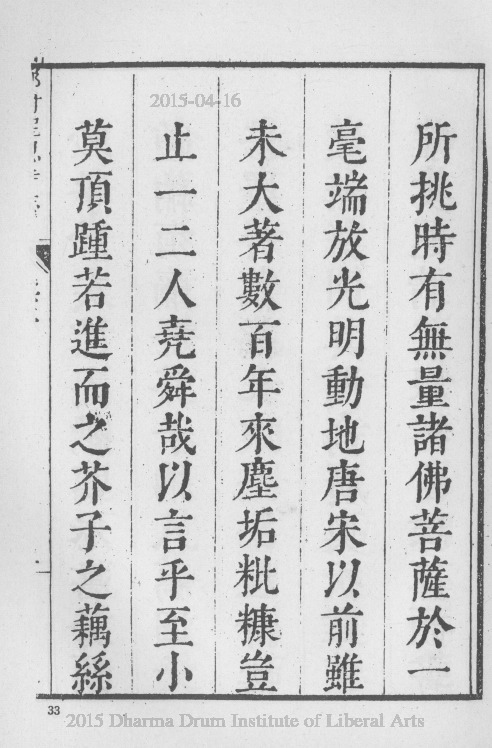 2015-04-16
所挑時有無量諸佛菩薩於一
毫端放光明動地唐宋以前雖
未大著數百年來塵垢粃糠豈
止一二人堯舜哉以言乎至小
莫頂踵若進而之芥子之藕絲
33
2015 Dharma Drum Institute of Liberal Arts